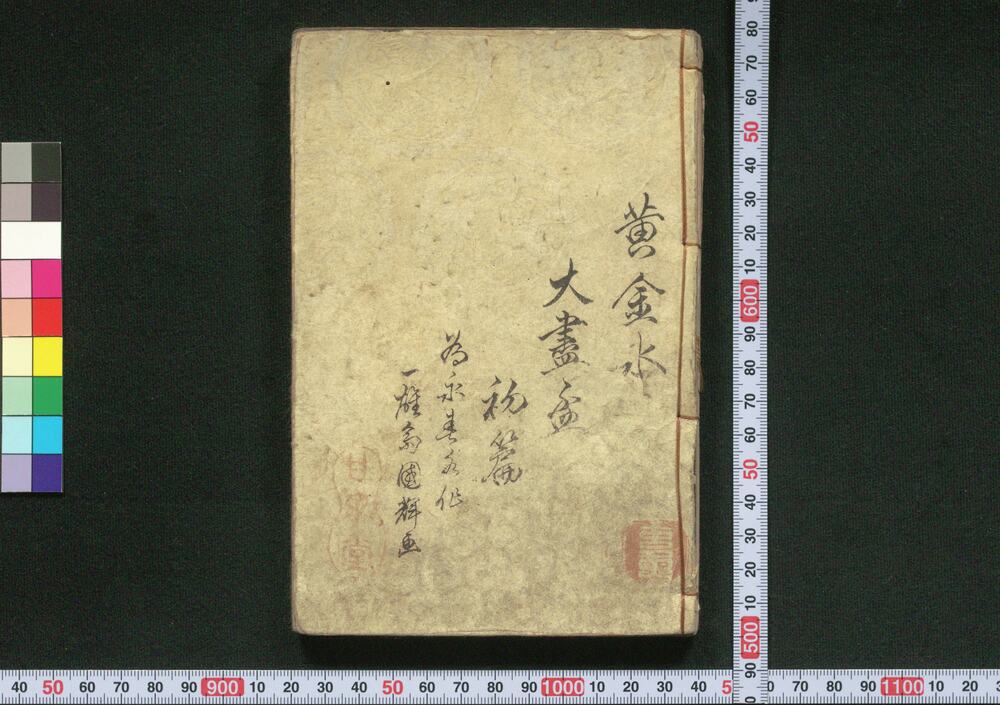 黄金水
大盡盃
初篇
為永春水作
一雄斎國輝画
80
70
60
50
40
30
20
10
600
90
80
70
60
50
40
30
20
10
500
90
40 50 60 70 80 90 900 10 20 30 40 50 60 70 80 90 1000 10 20 30 40 5 60 70 80 90 1100 10 20